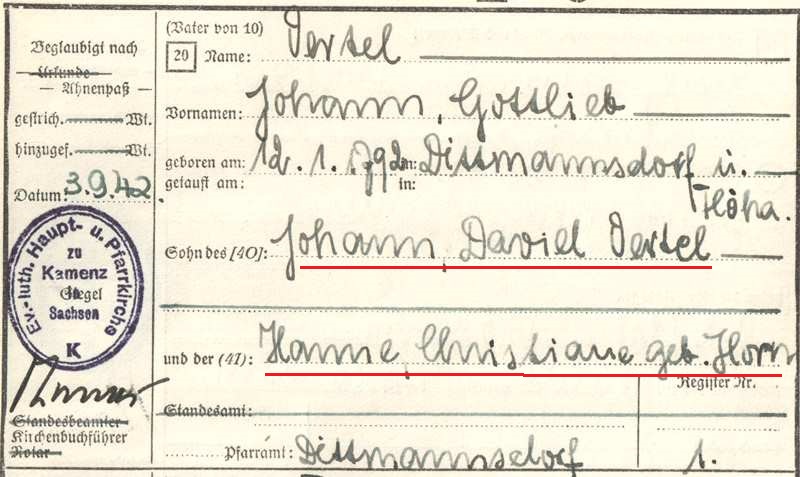 (Vater von 10)
Beglaubigt nach
Urkunde
— Ahnenpaß —
gestrich. Wt.
hinzugef. Wt.
Datum: 3.9.42.
20 Name: Oertel
Vornamen: Johann, Gottlieb
geboren am: 12. 1. 1792 in: Dittmannsdorf u.
Flöha.
getauft am: in:
Sohn des [40]: Johann, David Oertel
und der (41): Hanne, Christiane geb. Horn
Ev.-luth. Haupt- u. Pfarrkirche
zu
Kamenz
in
Siegel
Sachsen
K
Standesbeamter
Kirchenbuchführer
Notar
Register Nr.
Standesamt:
Pfarramt: Dittmannsdorf 1.